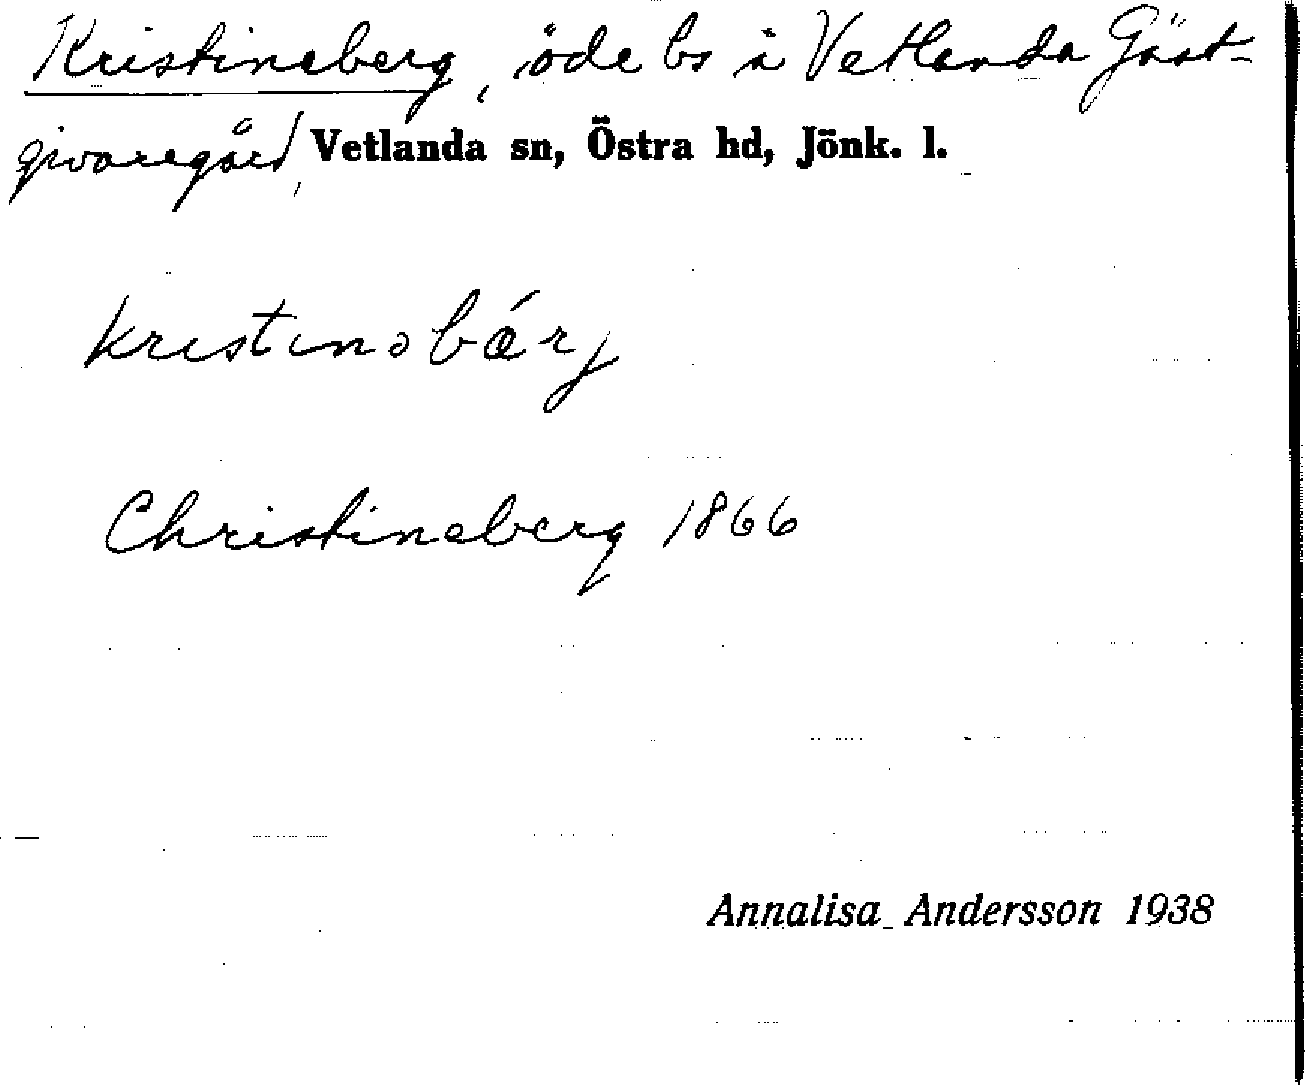 Kristineberg, öde bs å Vetlanda Gäst-
givaregård, Vetlanda sn, Östra hd, Jönk. l.
kristinəbǽrj
Christineberg 1866
Annalisa Andersson 1938